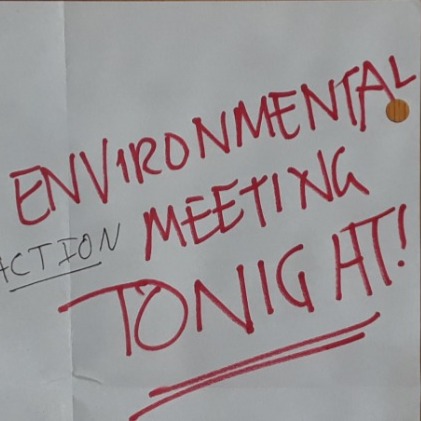 ENVIRONMENTAL
ACTION MEETING
TONIGHT!